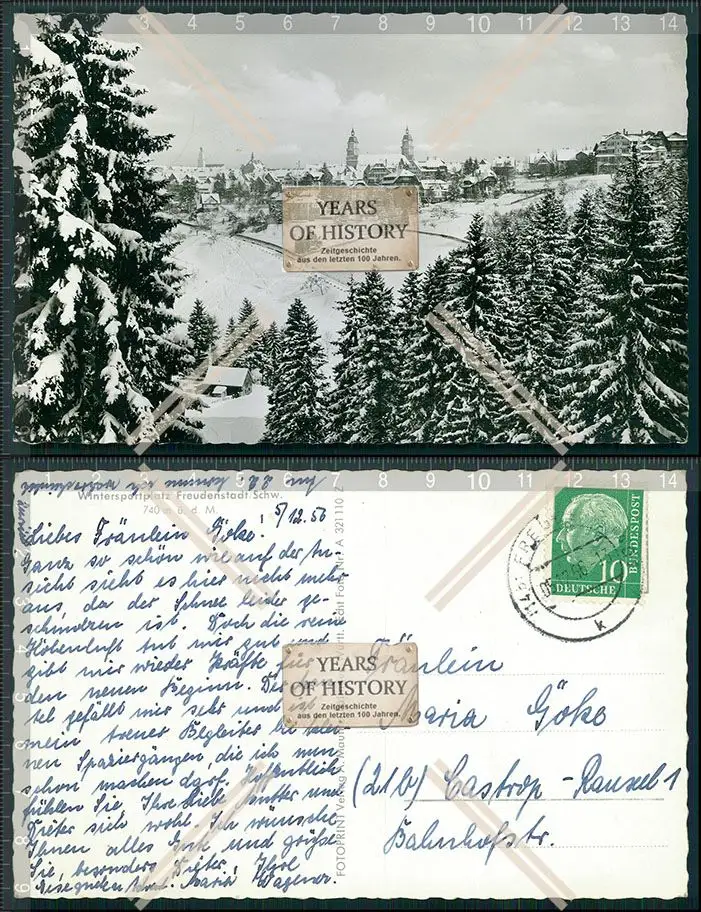 3 4 5 6 7 8 9 10 11 12 13 14
YEARS
OF HISTORY
Zeitgeschichte
aus den letzten 100 Jahren.
3 4 5 6 7 8 9 10 11 12 13 14
Wintersportplatz Freudenstadt Schw.
740 m ü. d. M.
5/12.56
Liebes Fräulein Göke!
Ganz so schön wie auf der An-
sicht sieht es hier nicht mehr
aus, da der Schnee leider ge-
schmolzen ist. Doch die reine
Höhenluft tut mir gut und
gibt mir wieder Kräfte für
den neuen Beginn. Die
tel gefällt mir sehr und ist
mein treuer Begleiter bei klei
nen Spaziergängen, die ich nun
schon machen darf. Hoffentlich
fühlen Sie, Ihre liebe Mutter und
Dieter sich wohl. Ich wünsche
Ihnen alles Gute und grüße
Sie, besonders Dieter, Ihre
Maria Wagener.
FOTOPRINT
A 321 110
DEUTSCHE
BUNDESPOST
10
k
YEARS
OF HISTORY
Zeitgeschichte
aus den letzten 100 Jahren.
Fräulein
Maria Göke
(21b) Castrop-Rauxel 1
Bahnhofstr.